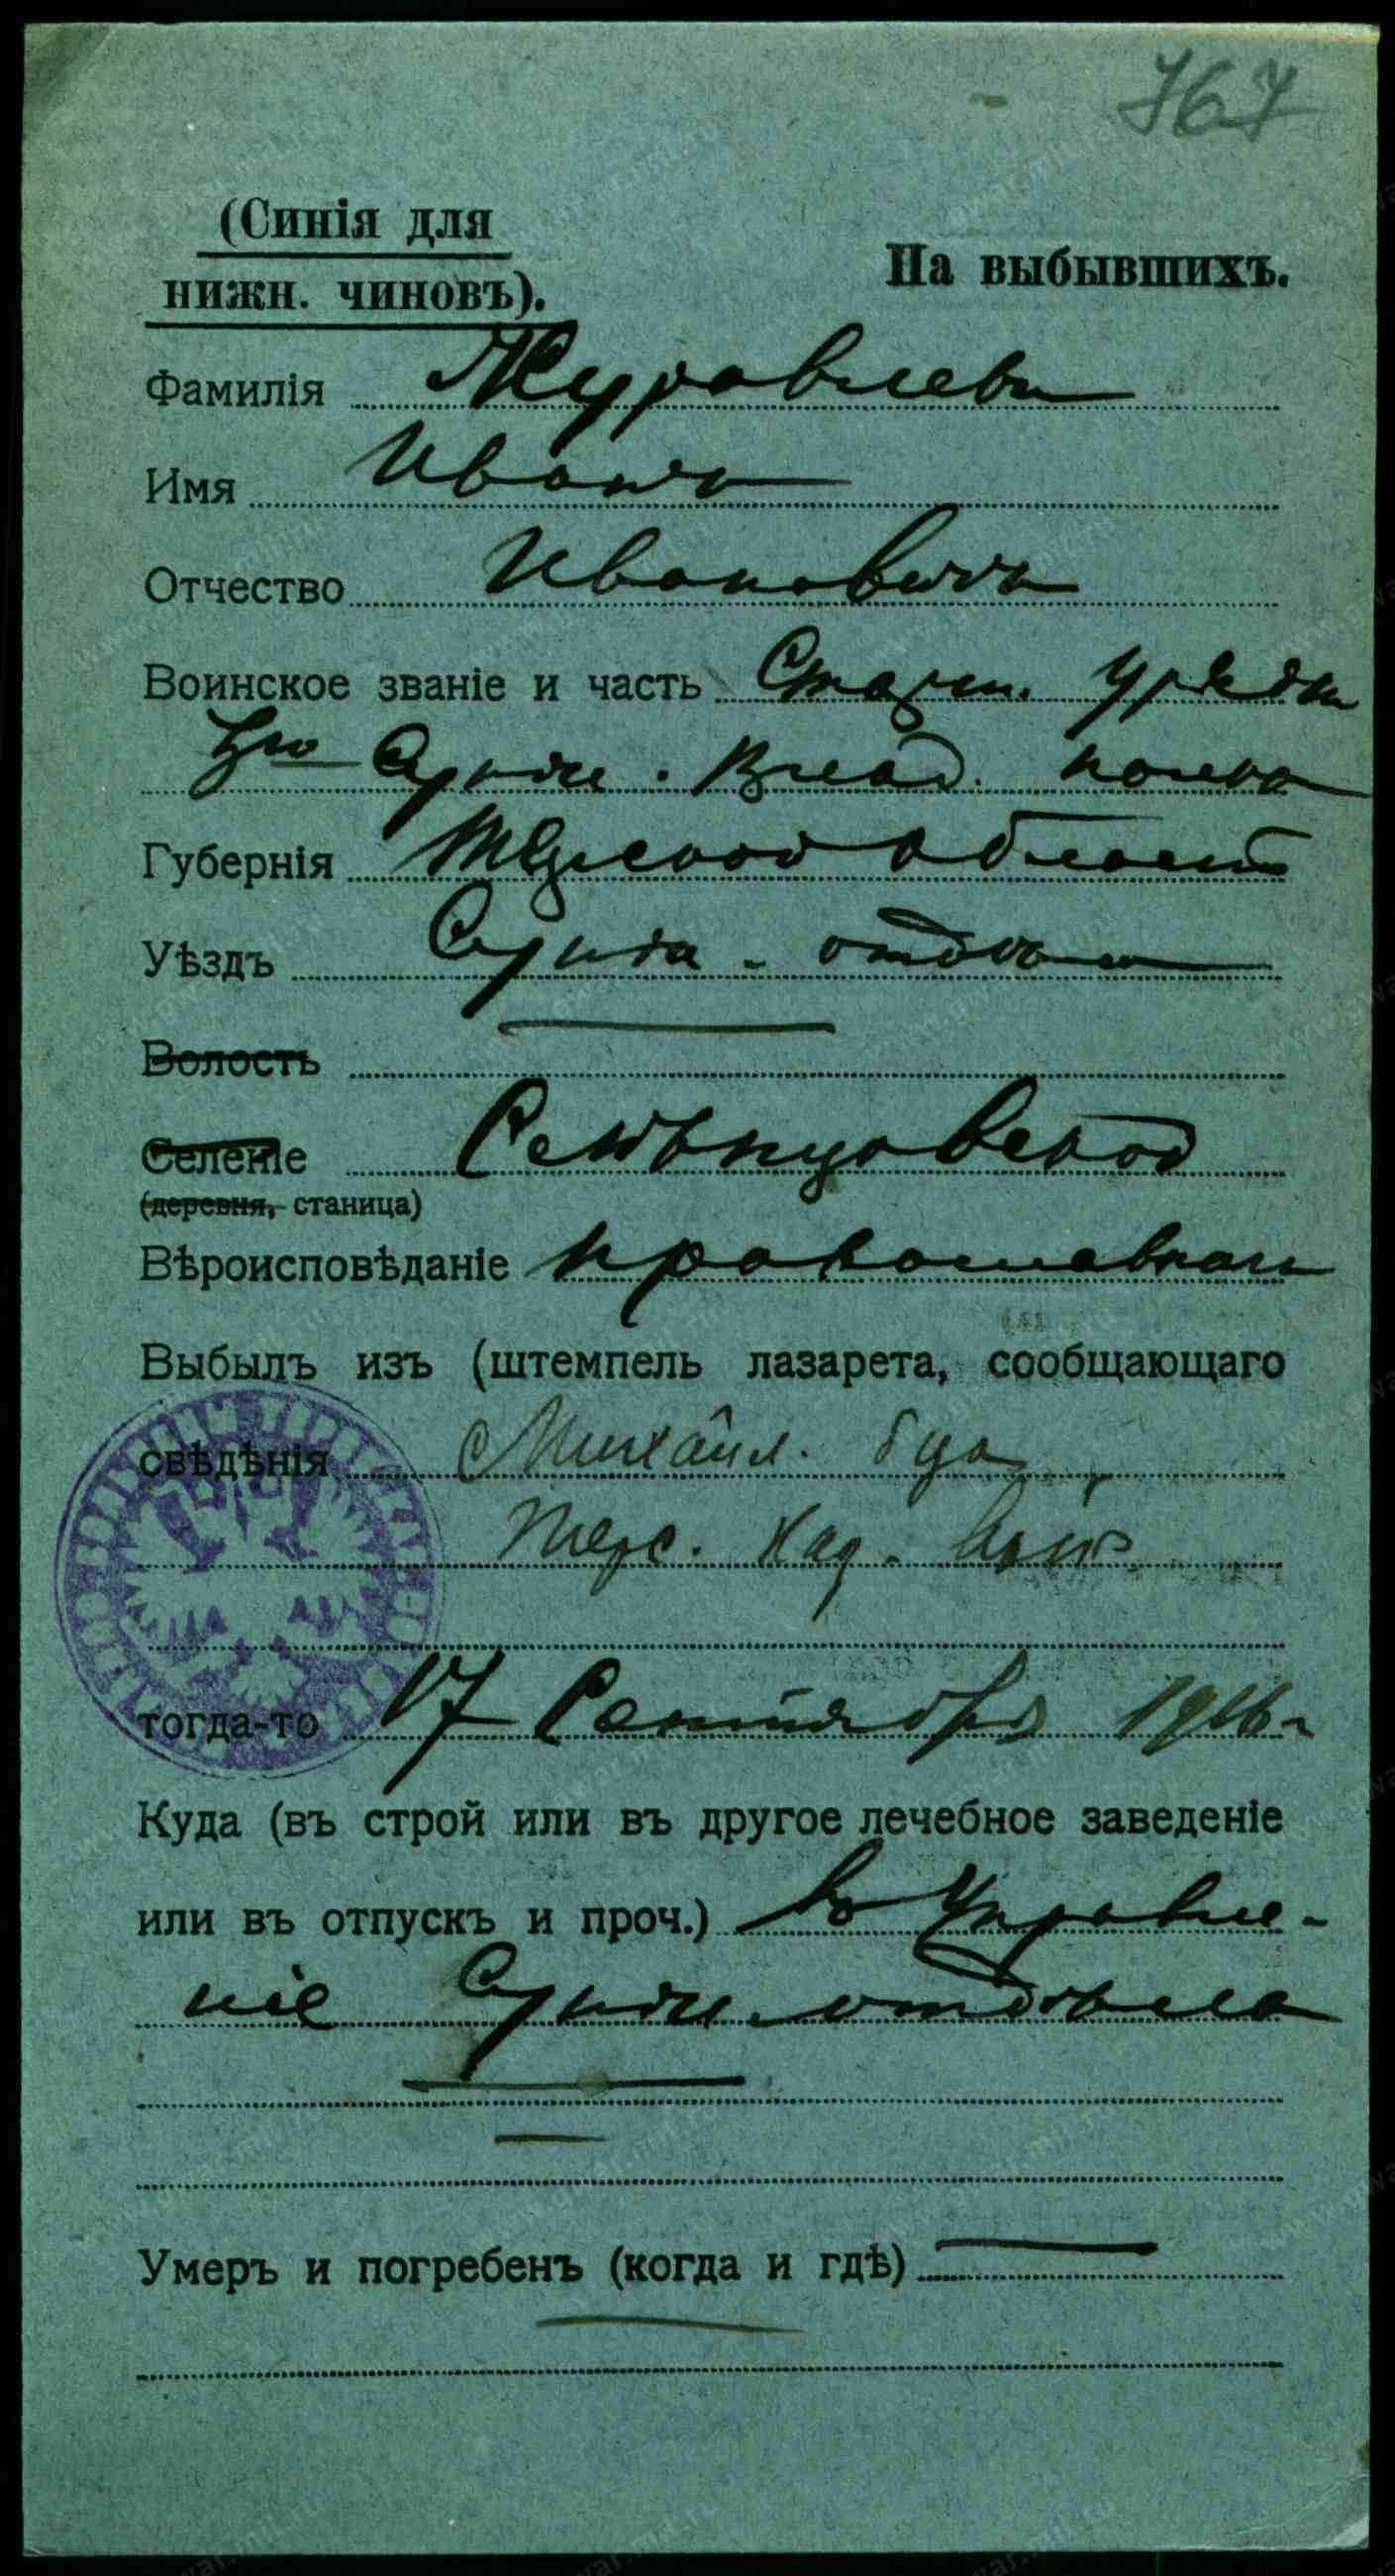 767
(Синія для
нижн. чиновъ).
На выбывшихъ.
Фамилія Журавлевъ
Имя Иванъ
Отчество Ивановичъ
Воинское званіе и часть Старш. урядн
3го Сунж. Влад. полка
Губернія Терской области
Уѣздъ Сунж. отдѣла
Волость
Селеніе Слѣпцовской
(деревня, станица)
Вѣроисповѣданіе православнаго
Выбылъ изъ (штемпель лазарета, сообщающаго
свѣдѣнія Михайл.
Терс. Каз. Войс
тогда-то 17 Сентября 1916 г
Куда (въ строй или въ другое лечебное заведеніе
или въ отпускъ и проч.) въ Управле-
ніе Сунж. отдѣла
Умеръ и погребенъ (когда и гдѣ)